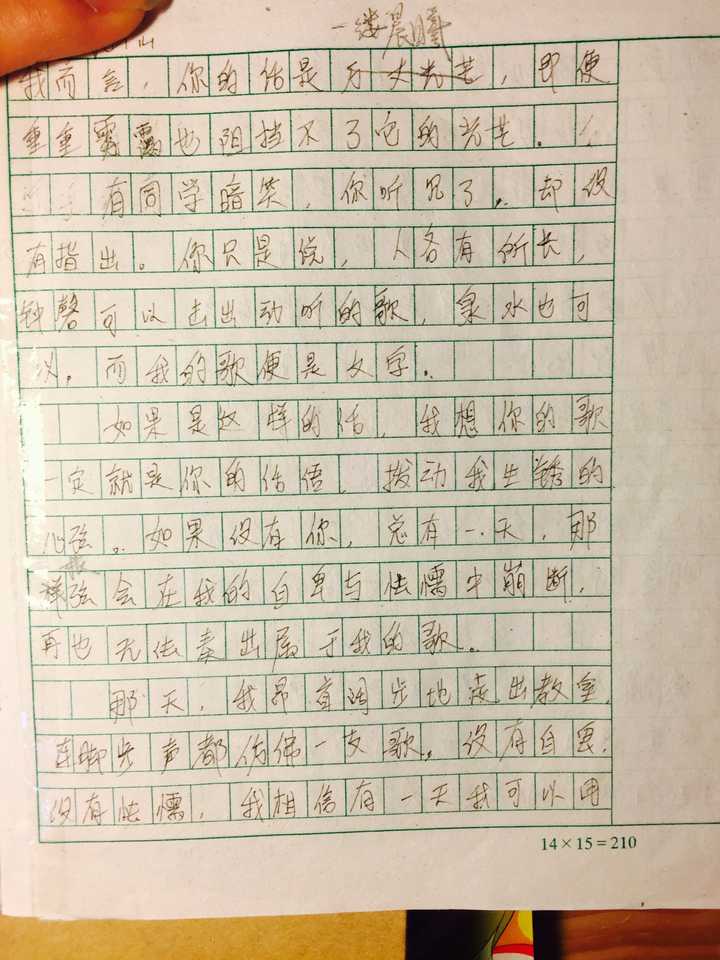 一缕晨曦
我而言，你的话是万丈光芒，即便
重重雾霭也阻挡不了它的光芒。
有同学暗笑，你听见了，却没
有指出。你只是说，人各有所长，
钟磬可以击出动听的歌，泉水也可
以。而我的歌便是文字。
如果是这样的话，我想你的歌
一定就是你的话语，拨动我生锈的
心弦。如果没有你，总有一天，那
弦会在我的自卑与怯懦中崩断，
再也无法奏出属于我的歌。
那天，我昂首阔步地走出教室，
连脚步声都仿佛一支歌。没有自卑，
没有怯懦，我相信有一天我可以用
14×15=210